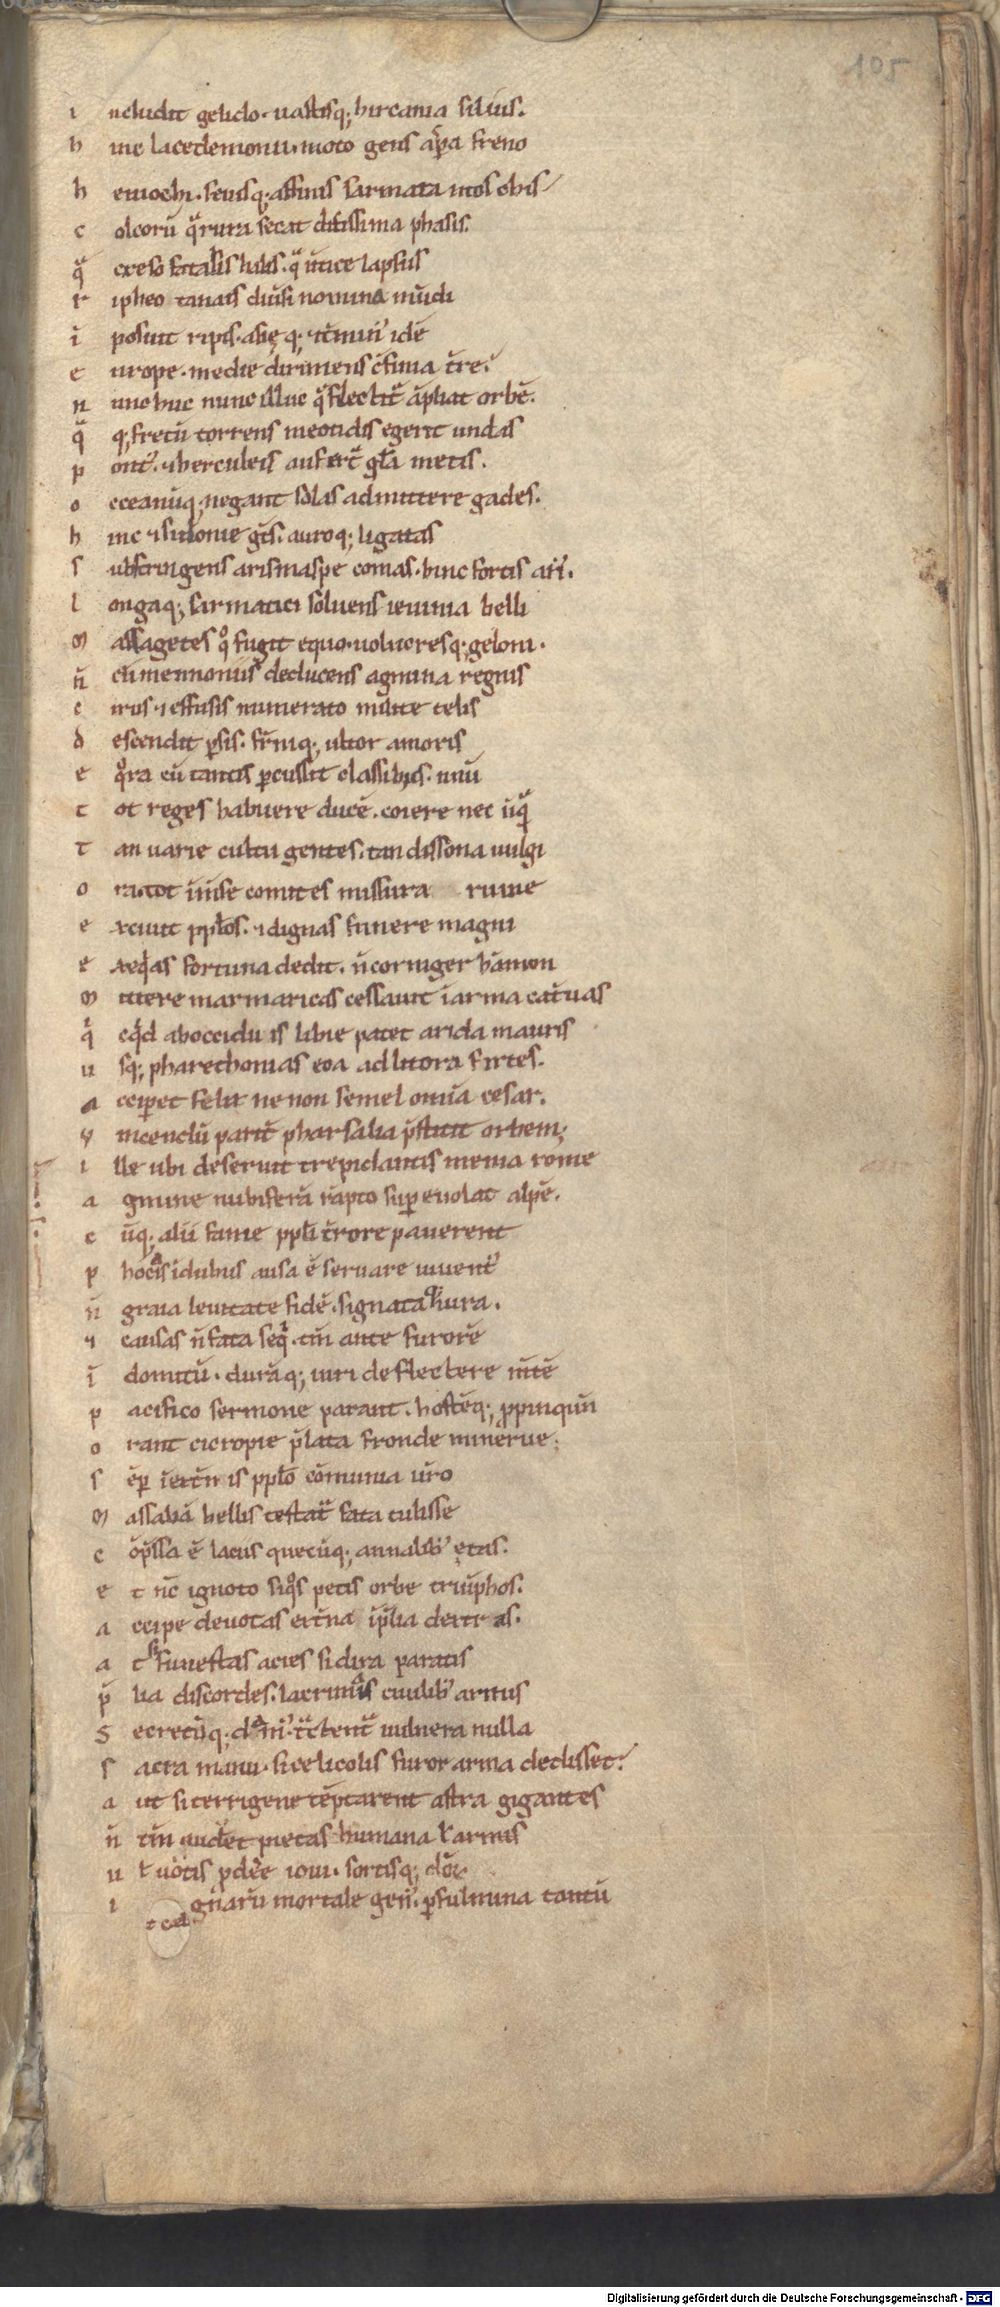 105
i ncludit gelido. uastisq; hircania siluis.
h inc lacedemonii. moto gens aṗa freno
h eniochi. seuisq; affinis sarmata moschis
c olcorū qͣ rura secat ditissima phasis.
qͣ creso fatalis halis. qͣ uͥtice lapsus
r ipheo tanais diuͥsi nomina mūdi
ī posuit ripis. asieq; ⁊ tͥminꝰ idē
e urope. medie dirimens cͥfinia tͥre.
n unc huc nunc illuc qͣ flectitͥ āpliat orbē.
qͣ q; fretū torrens meotidis egerit undas
p ontꝰ. ⁊ herculeis aufertͥ gl̄a metis.
o ceanūq; negant solas admittere gades.
h inc ⁊ sithonie gētes. auroq; ligatas
s ubstringens arismaspe comas. hinc fortis arīꝰ.
l ongaq; sarmatici soluens ieiunia belli
m assagetes qͦ fugit equo. uolucresq; geloni.
n̄ cū mennoniis deducens agmina regnis
c irus. ⁊ effusis numerato milite telis
d escendit ꝑsis. frͥniq; ultor amoris
e qͦra cū tantis percussit classibus. unū
t ot reges habuere ducē. coiere nec ūqͣ
t an uarie cultu gentes. tan dissona uulgi
o ra. tot īmīse comites missura ruine
e xciuit ppl̄os. ⁊ dignas funere magni
e xeqͥas fortuna dedit. n̄ corniger hāmon
m ittere marmaricas cessauit ī arma catͥuas
qͥ cqͥd aboccidu is libie patet arida mauris
u sq; pharethonias eoa ad litora sirtes.
a cciperet felix ne non semel omīa cesar.
v incendū paritͥ pharsalia pͥstitit orbem;
i lle ubi deseruit trepidantis menia rome
a gmine nubiferā rāpto super euolat alpē.
c ūq; alii fame ppl̄i tͥrore pauerent
p hocais ī dubiis ausa ē seruare iuuentꝰ
n̄ graia leuitate fidē. signataqͥ iura.
⁊ causas n̄ fata seqͥ. tm̄ ante furorē
ī domitū. durāq; uiri deflectere mͥtē
p acifico sermone parant. hostēq; ꝓpinquū
o rant cicropie pͥlata fronde minerue;
s ēꝑ ī extͥn is ppl̄o cōmunia uͥro
m assaliā bellis testatͥ fata tulisse
c ōpͥssa ē latius quecūq; annalibꝰ etas.
e t nͨ ignoto siqͦs petis orbe triūphos.
a ccipe deuotas extͥna ī pͥlia dextr as.
a t si funestas acies si dira paratis
pͥ lia discordes. lacrimas ciuilibꝰ armis
S ecretūq; damꝰ. tͣctentͥ uulnera nulla
s acra manu. si celicolis furor arma dedisset.
a ut si terrigene tēptarent astra gigantes
n̄ tm̄ audet pietas humana ł armis
u ł uotis ꝓdēe ioui. sortisq; dōꝝ.
i gnarū mortale genꝰ. per fulmina tantū